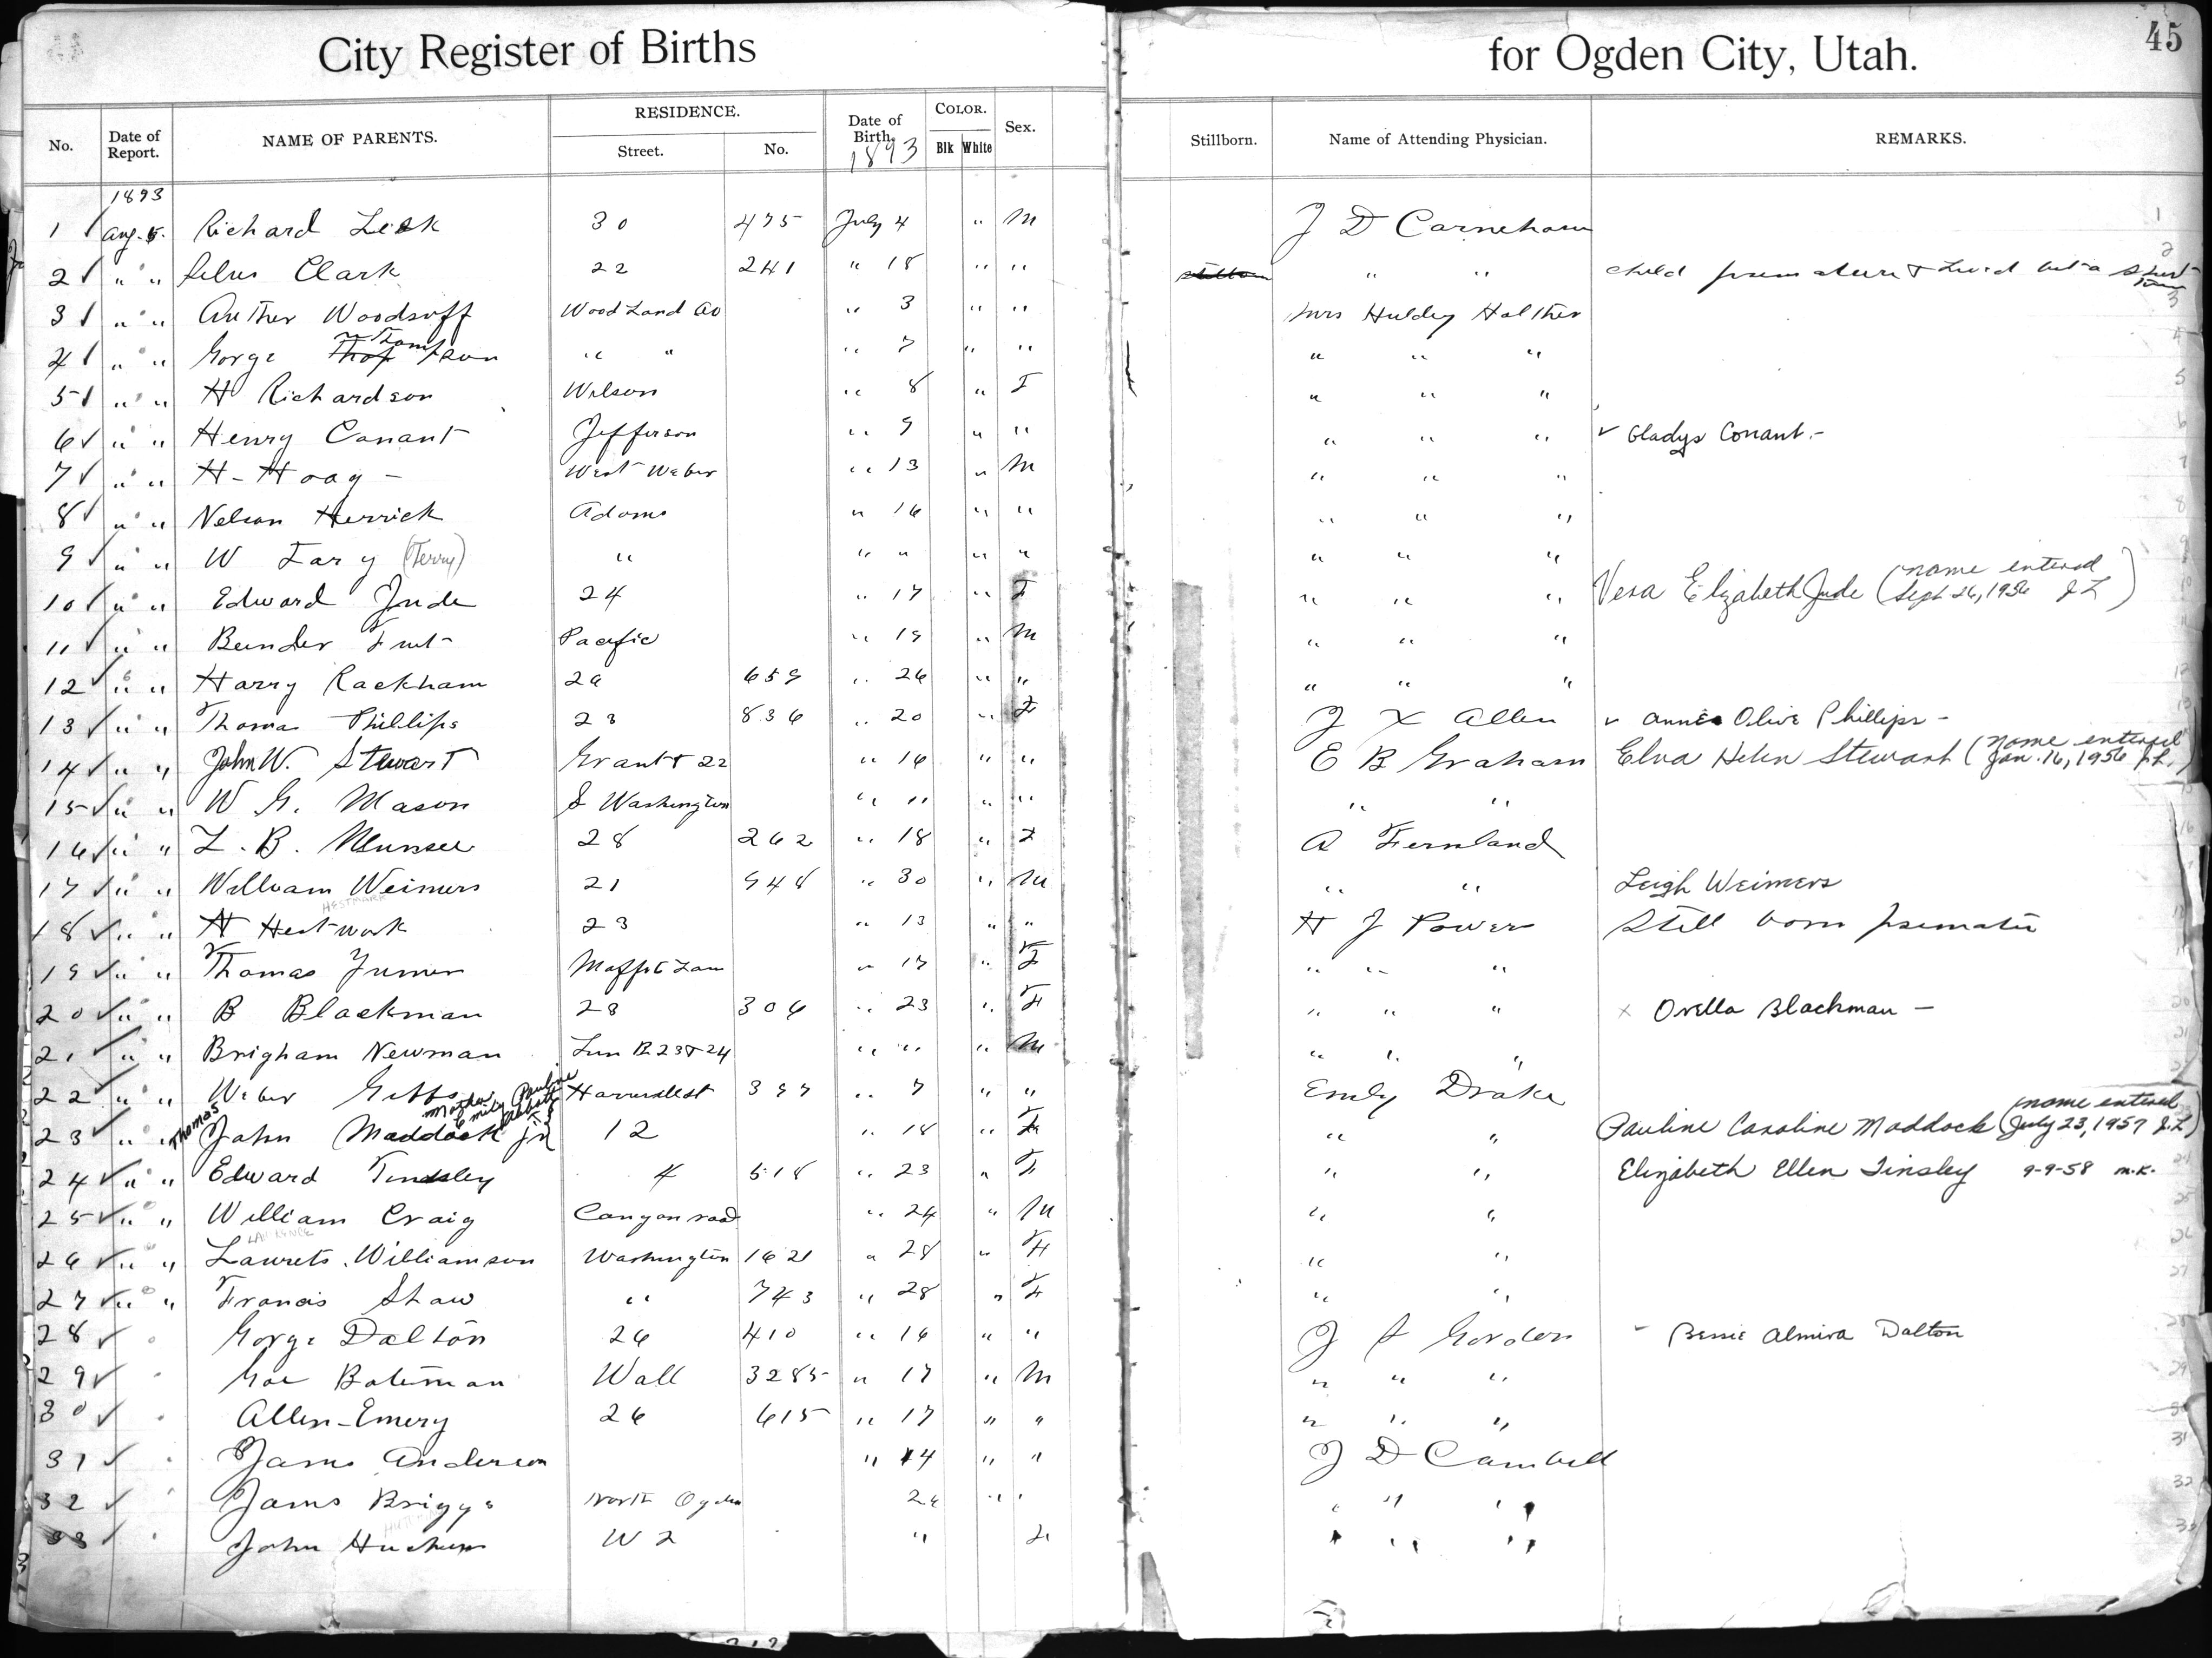 City Register of Births for Ogden City, Utah. 45
No. Date of Report. NAME OF PARENTS. RESIDENCE. Street. No. Date of Birth. 1893 COLOR. Blk White Sex. Stillborn. Name of Attending Physician. REMARKS.
1893
1 Aug. 5. Richard Leek 30 475 July 4 " M J D Carnehan 1
2 " " Clark 22 241 " 18 " " Stillborn " " child premature & Lived but a short time 2
3 " " Auther Woodruff Wood Land av " 3 " " Mrs Huldey Halther 3
4 " " Gorge Thompson " " " 7 " " " " " 4
5 " " H Richardson Wilson " 8 " F " " " 5
6 " " Henry Conant Jefferson " 9 " " " " " Gladys Conant.- 6
7 " " H - Hoag - West Weber " 13 " M " " " 7
8 " " Nelson Herrick Adams " 16 " " " " " 8
9 " " W Tary (Terry) " " " " " " " " 9
10 " " Edward Jude 24 " 17 " F " " " Vera Elizabeth Jude (name entered Sept 26, 1936 JL) 10
11 " " Pacific " 19 " M " " " 11
12 " " Harry Rackham 26 659 " 26 " " " " " 12
13 " " Thomas Phillips 23 836 " 20 " F J X Allen Annie Olive Phillips - 13
14 " " John W. Stewart Grant & 22 " 16 " " E B Graham Elva Helen Stewart (name entered Jan. 16, 1956 J.L.)
15 " " W G. Mason S Washington " 11 " " " " 15
16 " " L. B. Munsee 28 262 " 18 " F A Fernland 16
17 " " William Weimers 21 948 " 30 " M " " Leigh Weimers
HESTMARK
18 " " H Hestmark 23 " 13 " " H J Power Still born premature
19 " " Thomas Turner Moffit Lan " 17 " F " " "
20 " " B Blackman 28 306 " 23 " F " " " x Orella Blackman - 20
21 " " Brigham Newman B 23 & 24 " " " M " " " 21
22 " " Weber Gibbs 397 " 7 " " Emily Drake
Mother Emily Pauline
23 " " Thomas John Maddock Jr 12 " 18 " F " " Pauline Caroline Maddock (name entered July 23, 1957 J.L.)
24 " " Edward Tinsley 4 518 " 23 " F " " Elizabeth Ellen Tinsley 9-9-58 m.k. 24
25 " " William Craig Canyon road " 24 " M " " 25
26 " " Laurets. Williamson Washington 1621 " 28 " F " " 26
27 " " Francis Shaw " 743 " 28 " F " " 27
28 Gorge Dalton 26 410 " 16 " " J S Gordon Bessie Almira Dalton 28
29 Goe Bateman Wall 3285 " 17 " M " " " 29
30 Allen-Emery 26 615 " 17 " " " " "
31 James Anderson " 14 " " J D Cambell 31
32 James Briggs North Ogden 26 " " " " " 32
33 John W 2 " F " " " 33